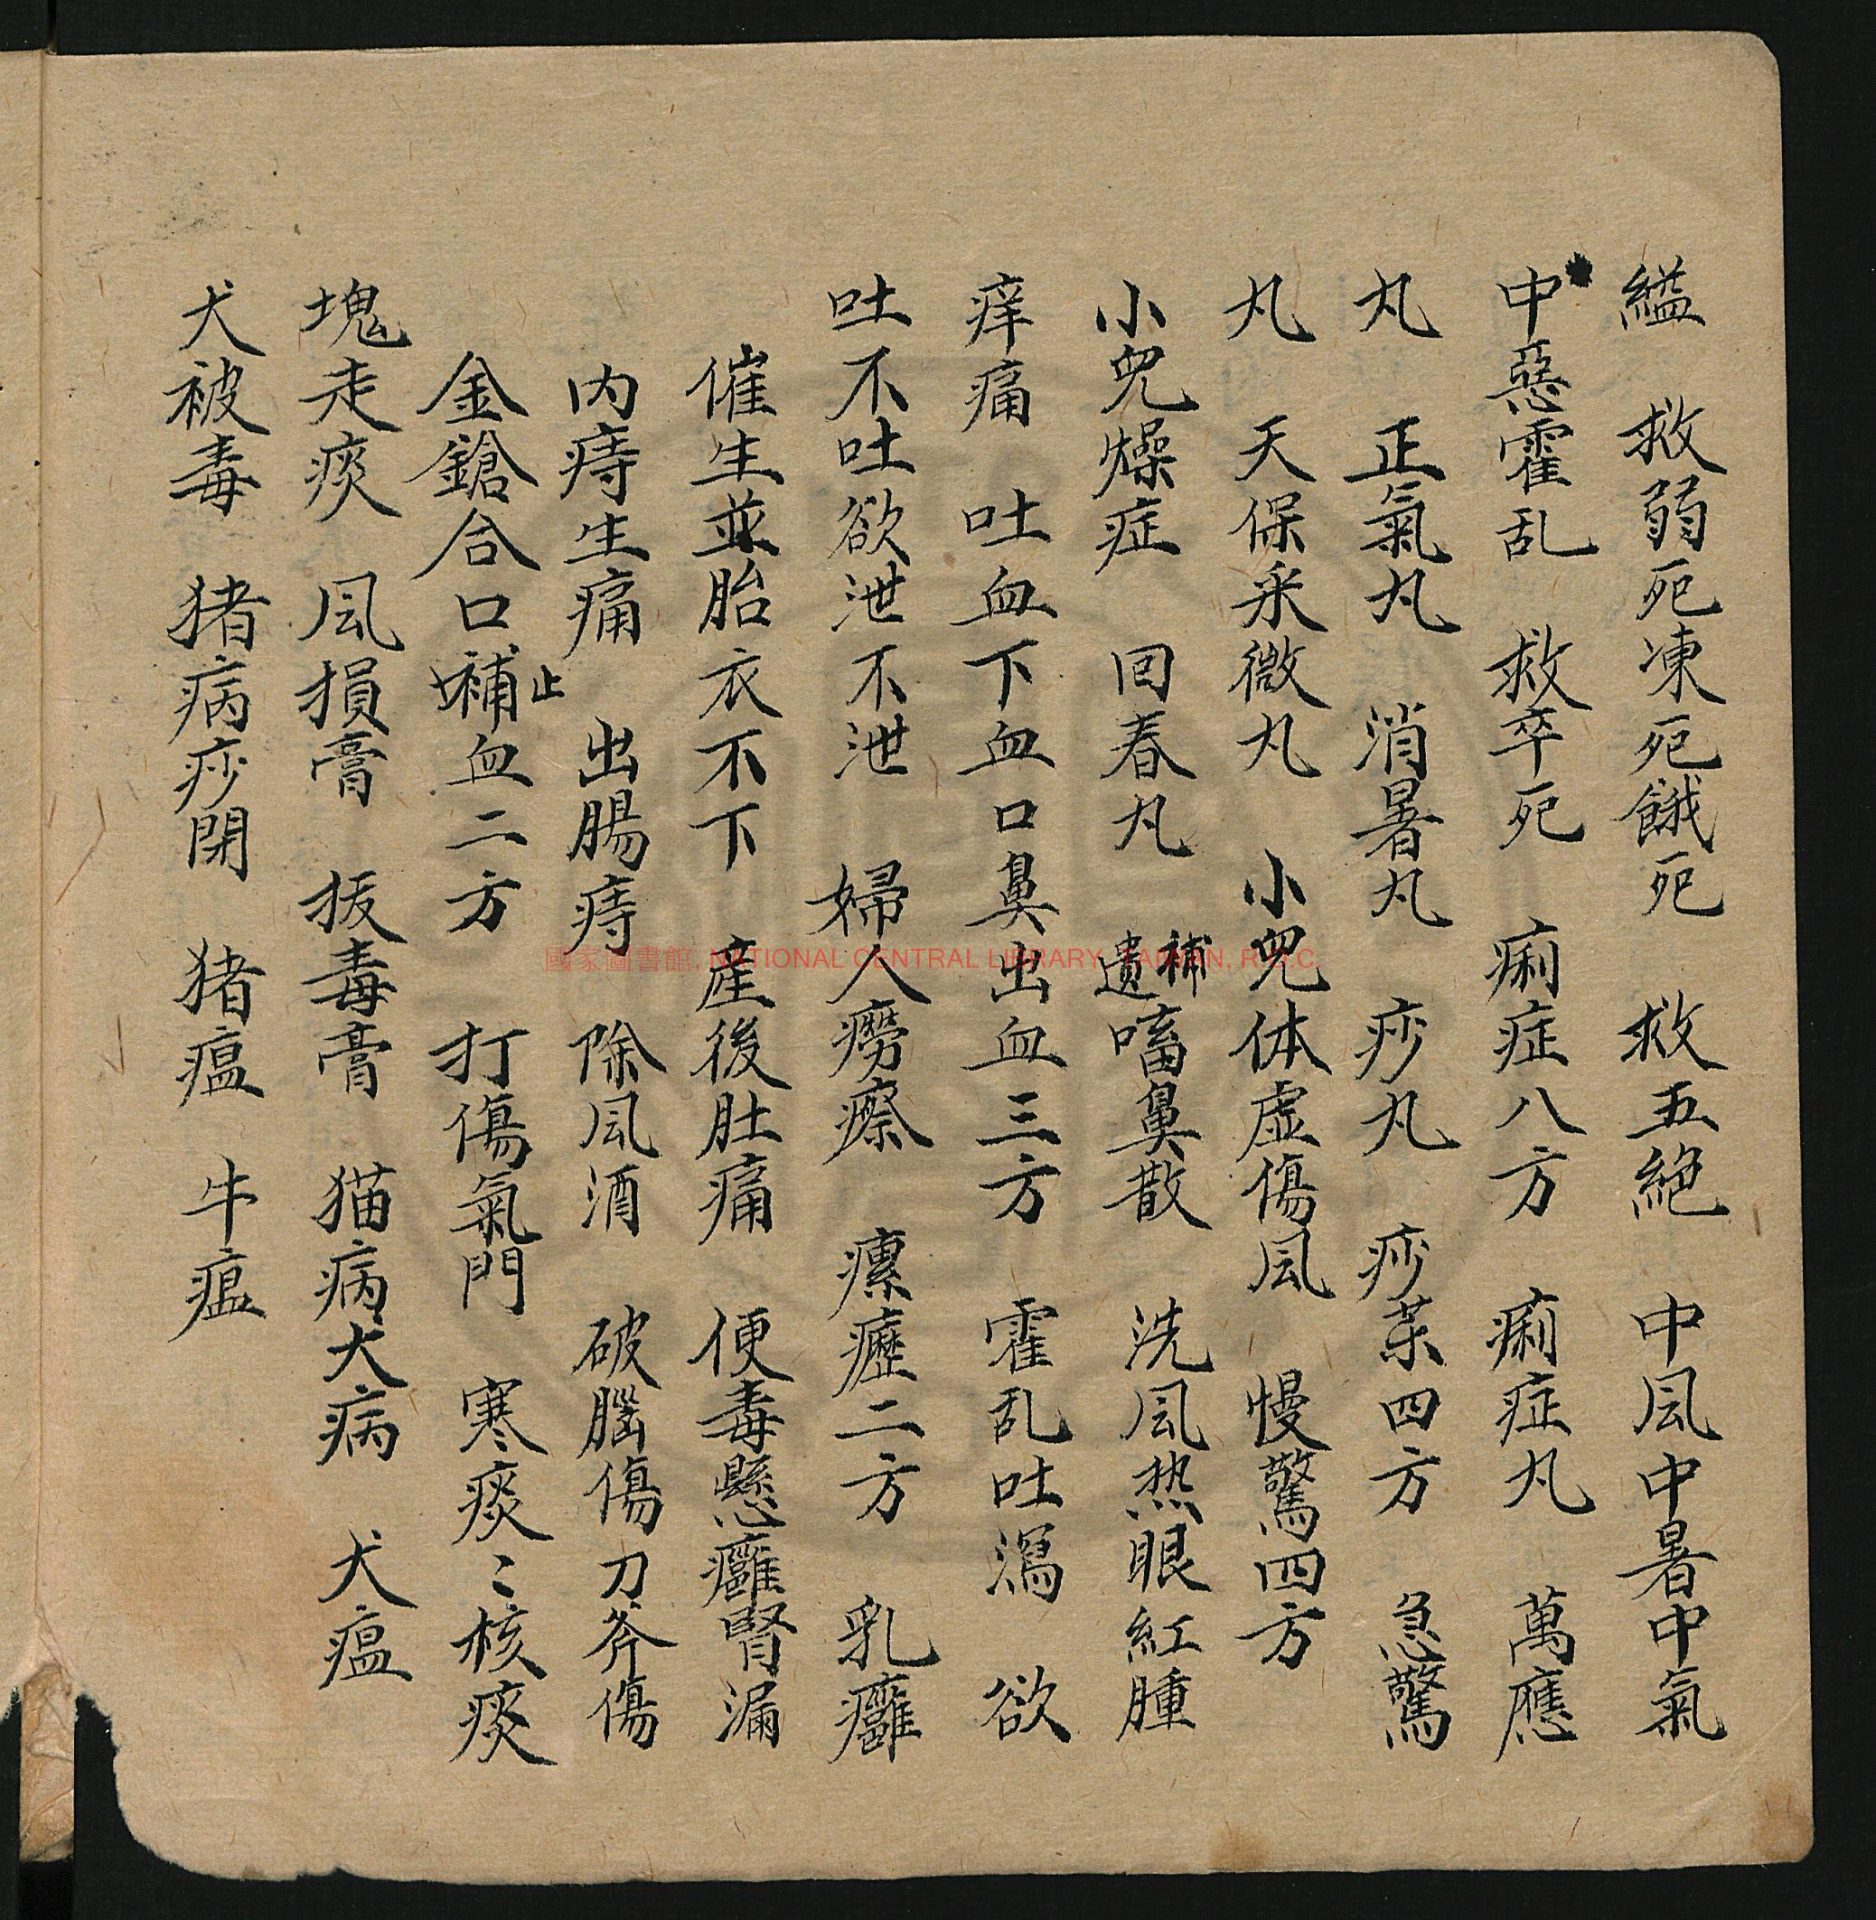 縊　救弱死凍死餓死　救五絕　中風中暑中氣
中惡霍乱　救卒死　痢症八方　痢症丸　萬應
丸　正氣丸　消暑丸　痧丸　痧茶四方　急驚
丸　天保采微丸　小兒体虛傷風　慢驚四方
小兒燥症　回春丸　補遺　嗜鼻散　洗風热眼紅腫
痒痛　吐血下血口鼻出血三方　霍乱吐瀉　欲
吐不吐欲泄不泄　婦人癆瘵　瘰癧二方　乳癰
催生並胎衣不下　產後肚痛　便毒懸癰腎漏
內痔生痛　出腸痔　除風酒　破腦傷刀斧傷
金鎗合口補止血二方　打傷氣門　寒痰〻核痰
塊走痰　風損膏　拔毒膏　猫病犬病　犬瘟
犬被毒　猪病痧閉　猪瘟　牛瘟
國家圖書館, NATIONAL CENTRAL LIBRARY, TAIWAN, R.O.C.